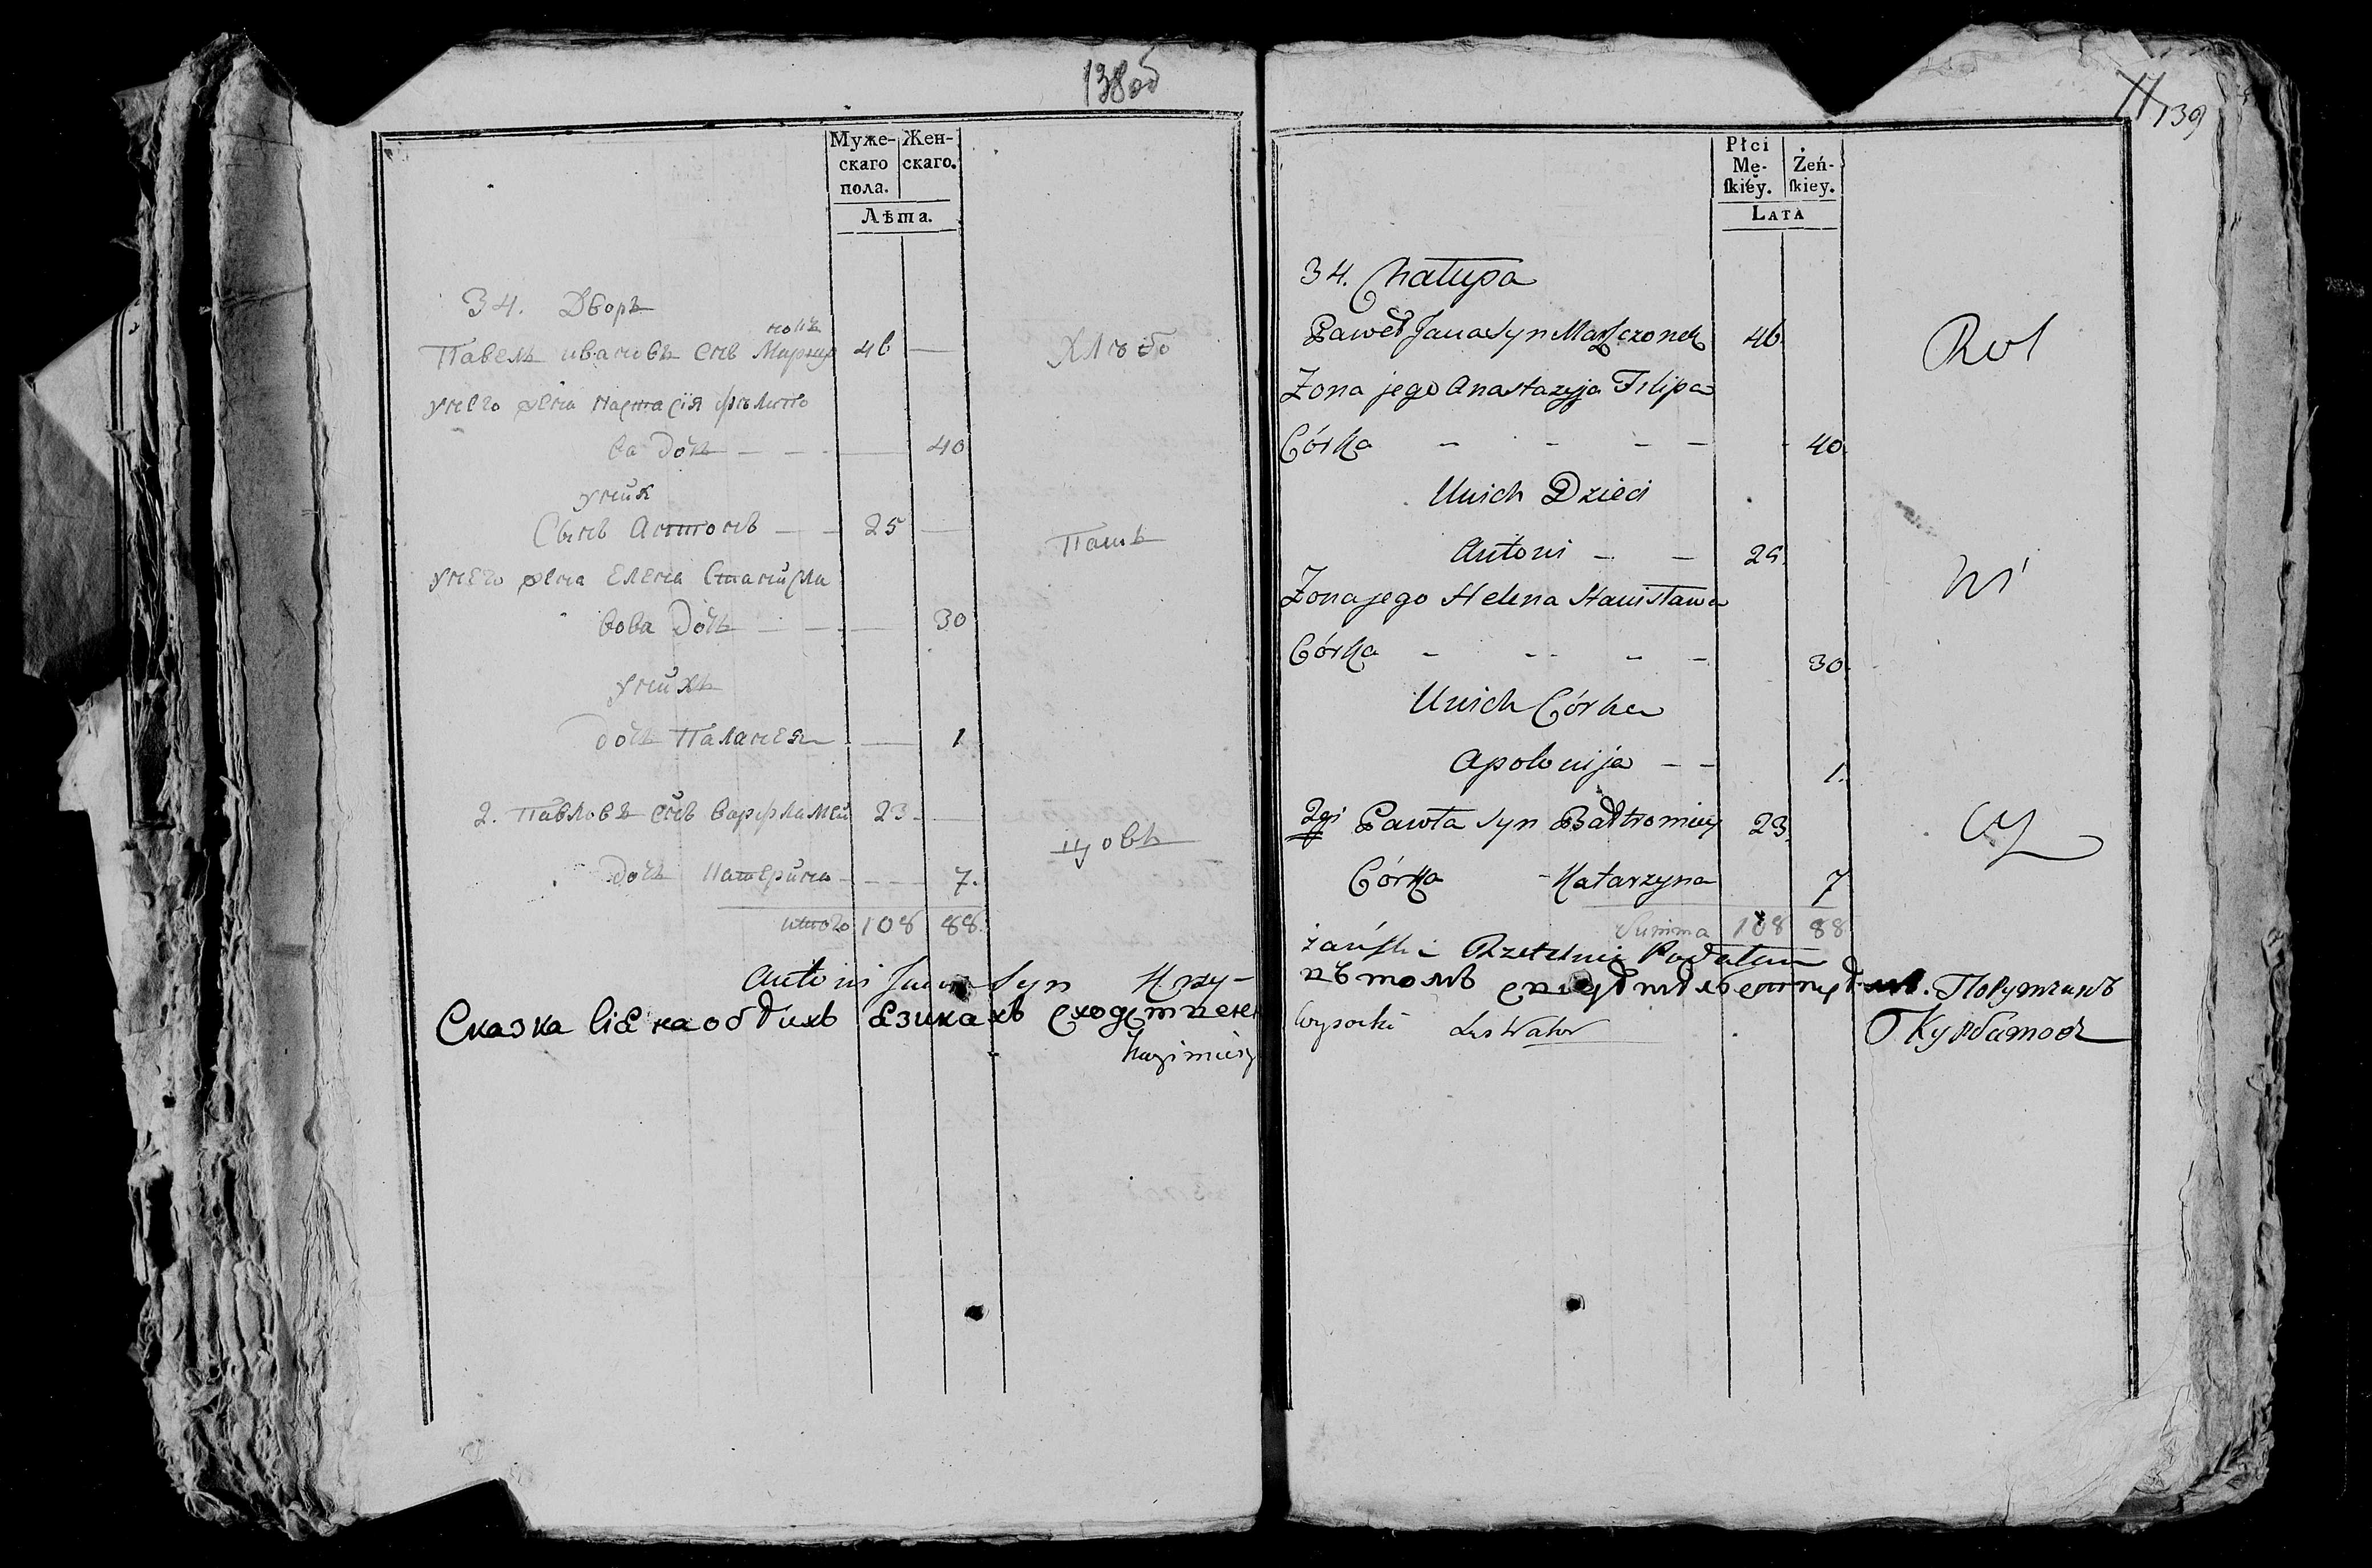 138об
Муже-
скаго
пола.
Жен-
скаго.
Лѣта.
34. Дворъ
Павелъ ивановъ снъ
46
Хлѣбо
унего жена настасія филипо
ва дочь 40
уних
Сынъ Антонъ 25
Паш
унего жена Елена Станисла
вова дочь 30
унихъ
дочь Паланея 1
2. Павловъ снъ варфламей 23
цовъ
дочь Катерина 7.
итого 108 88.
Antoni Jana Syn Krzy-
Сказка сіе на обдихъ езикахъ
Kazimierz
77
139
Płci
Mę-
ſkiéy.
Żeń-
ſkiey.
LATA
34. Chałupa
Paweł Jana Syn 46.
Rol
Żona jego Anastazyja Filipa
Córka - - - - - 40.
Unich Dzieci
Antoni - - 25.
ni
Żona jego Helena Stanisława
Córka - - - - 30.
Unich Córka
Apolonija - - 1.
2gi Pawła Syn Bałtromiey 23.
cy
Córka - Katarzyna 7
Summa 108 88
żański Rzetelnie Podałem
въ томъ Порутчикъ
Wysocki Lustrator
Курбатов